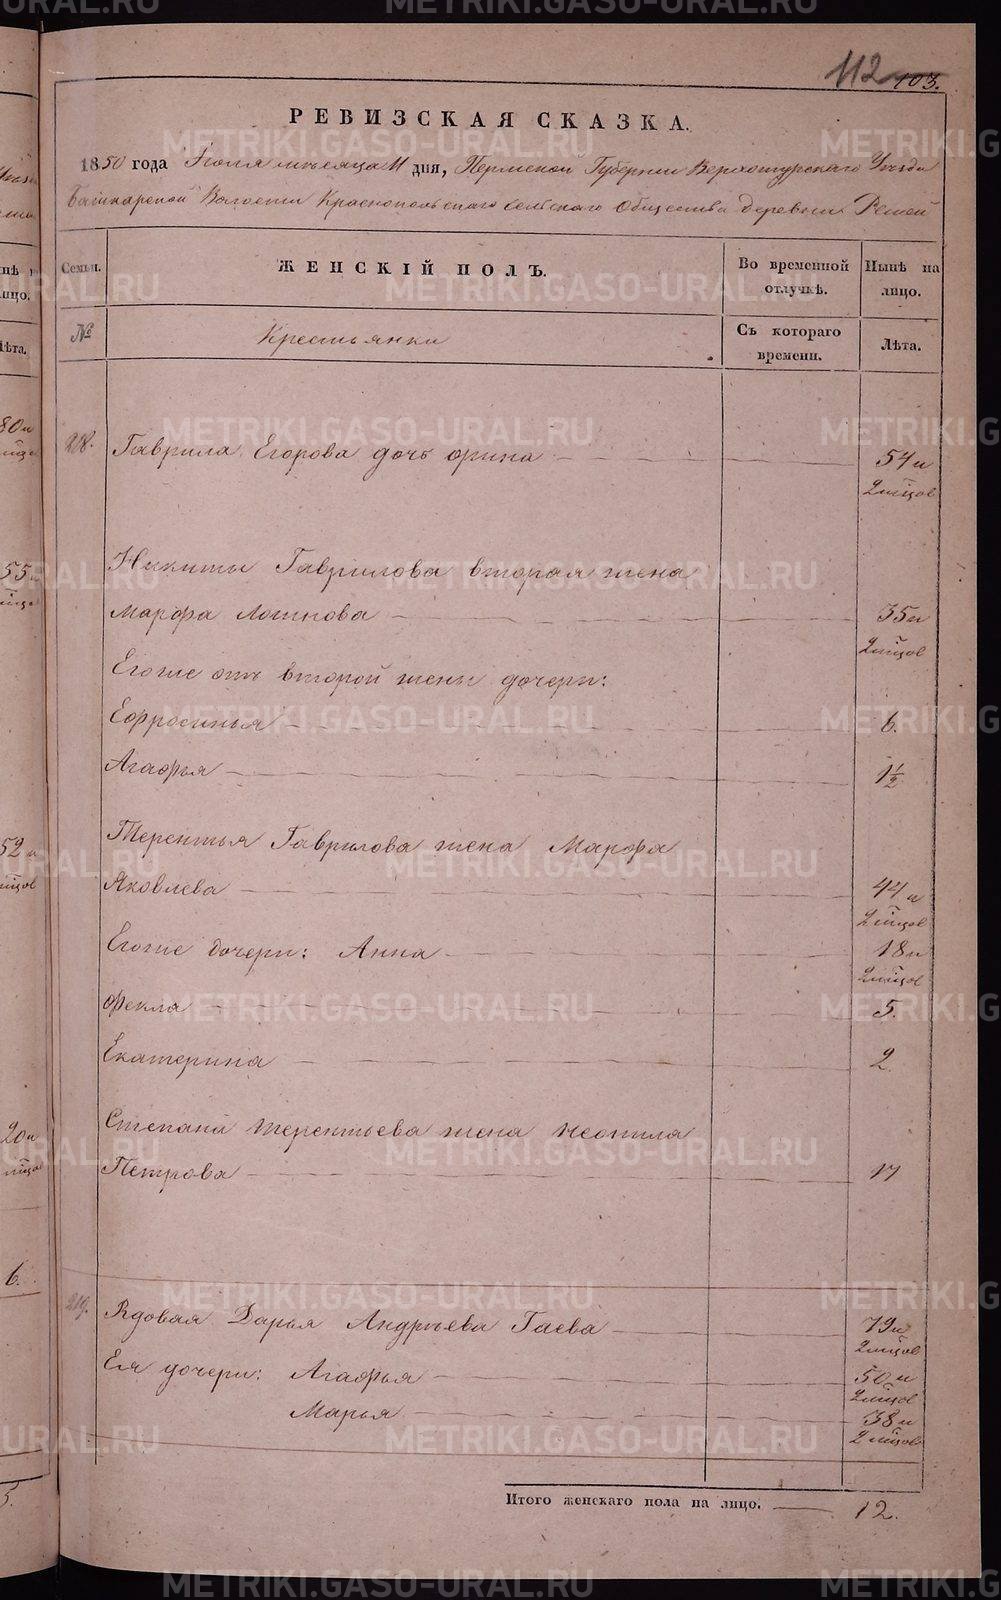 112 103.
РЕВИЗСКАЯ СКАЗКА.
1850 года Июля месяца 11 дня, Пермской Губернии Верхотурского Уезда
Башкарской Волости Краснопольского сельского Общества деревни
Семьи. ЖЕНСКІЙ ПОЛЪ. Во временной отлучкѣ. Нынѣ на лицо.
№ Крестьянки Съ котораго времени. Лѣта.
218. Гаврила Егорова дочь орина 54 и
2 мѣцов
Никиты Гаврилова вторая жена
Марфа Логинова 35 и
2 мѣцов
Егоже отъ второй жены дочери:
Ефросинья 6.
Агафья 1½
Терентья Гаврилова жена Марфа
Яковлева 44 и
2 мѣцов
Егоже дочери: Анна 18 и
2 мѣцов
Фекла 5.
Екатерина 2
Степана Терентьева жена Неонила
Петрова 17
219. Вдовая Дарья Андрѣева Гаева 79 и
2 мѣцов
Ея дочери: Агафья 50 и
2 мѣцов
Марья 38 и
2 мѣцов
Итого женскаго пола на лицо. 12.
METRIKI.GASO-URAL.RU